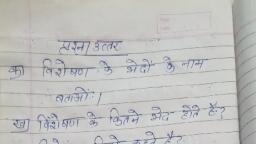 प्रश्न / उत्तर
क) विशेषण के भेदों के नाम
बताओ।
ख) विशेषण के कितने भेद होते है?
कहते है?